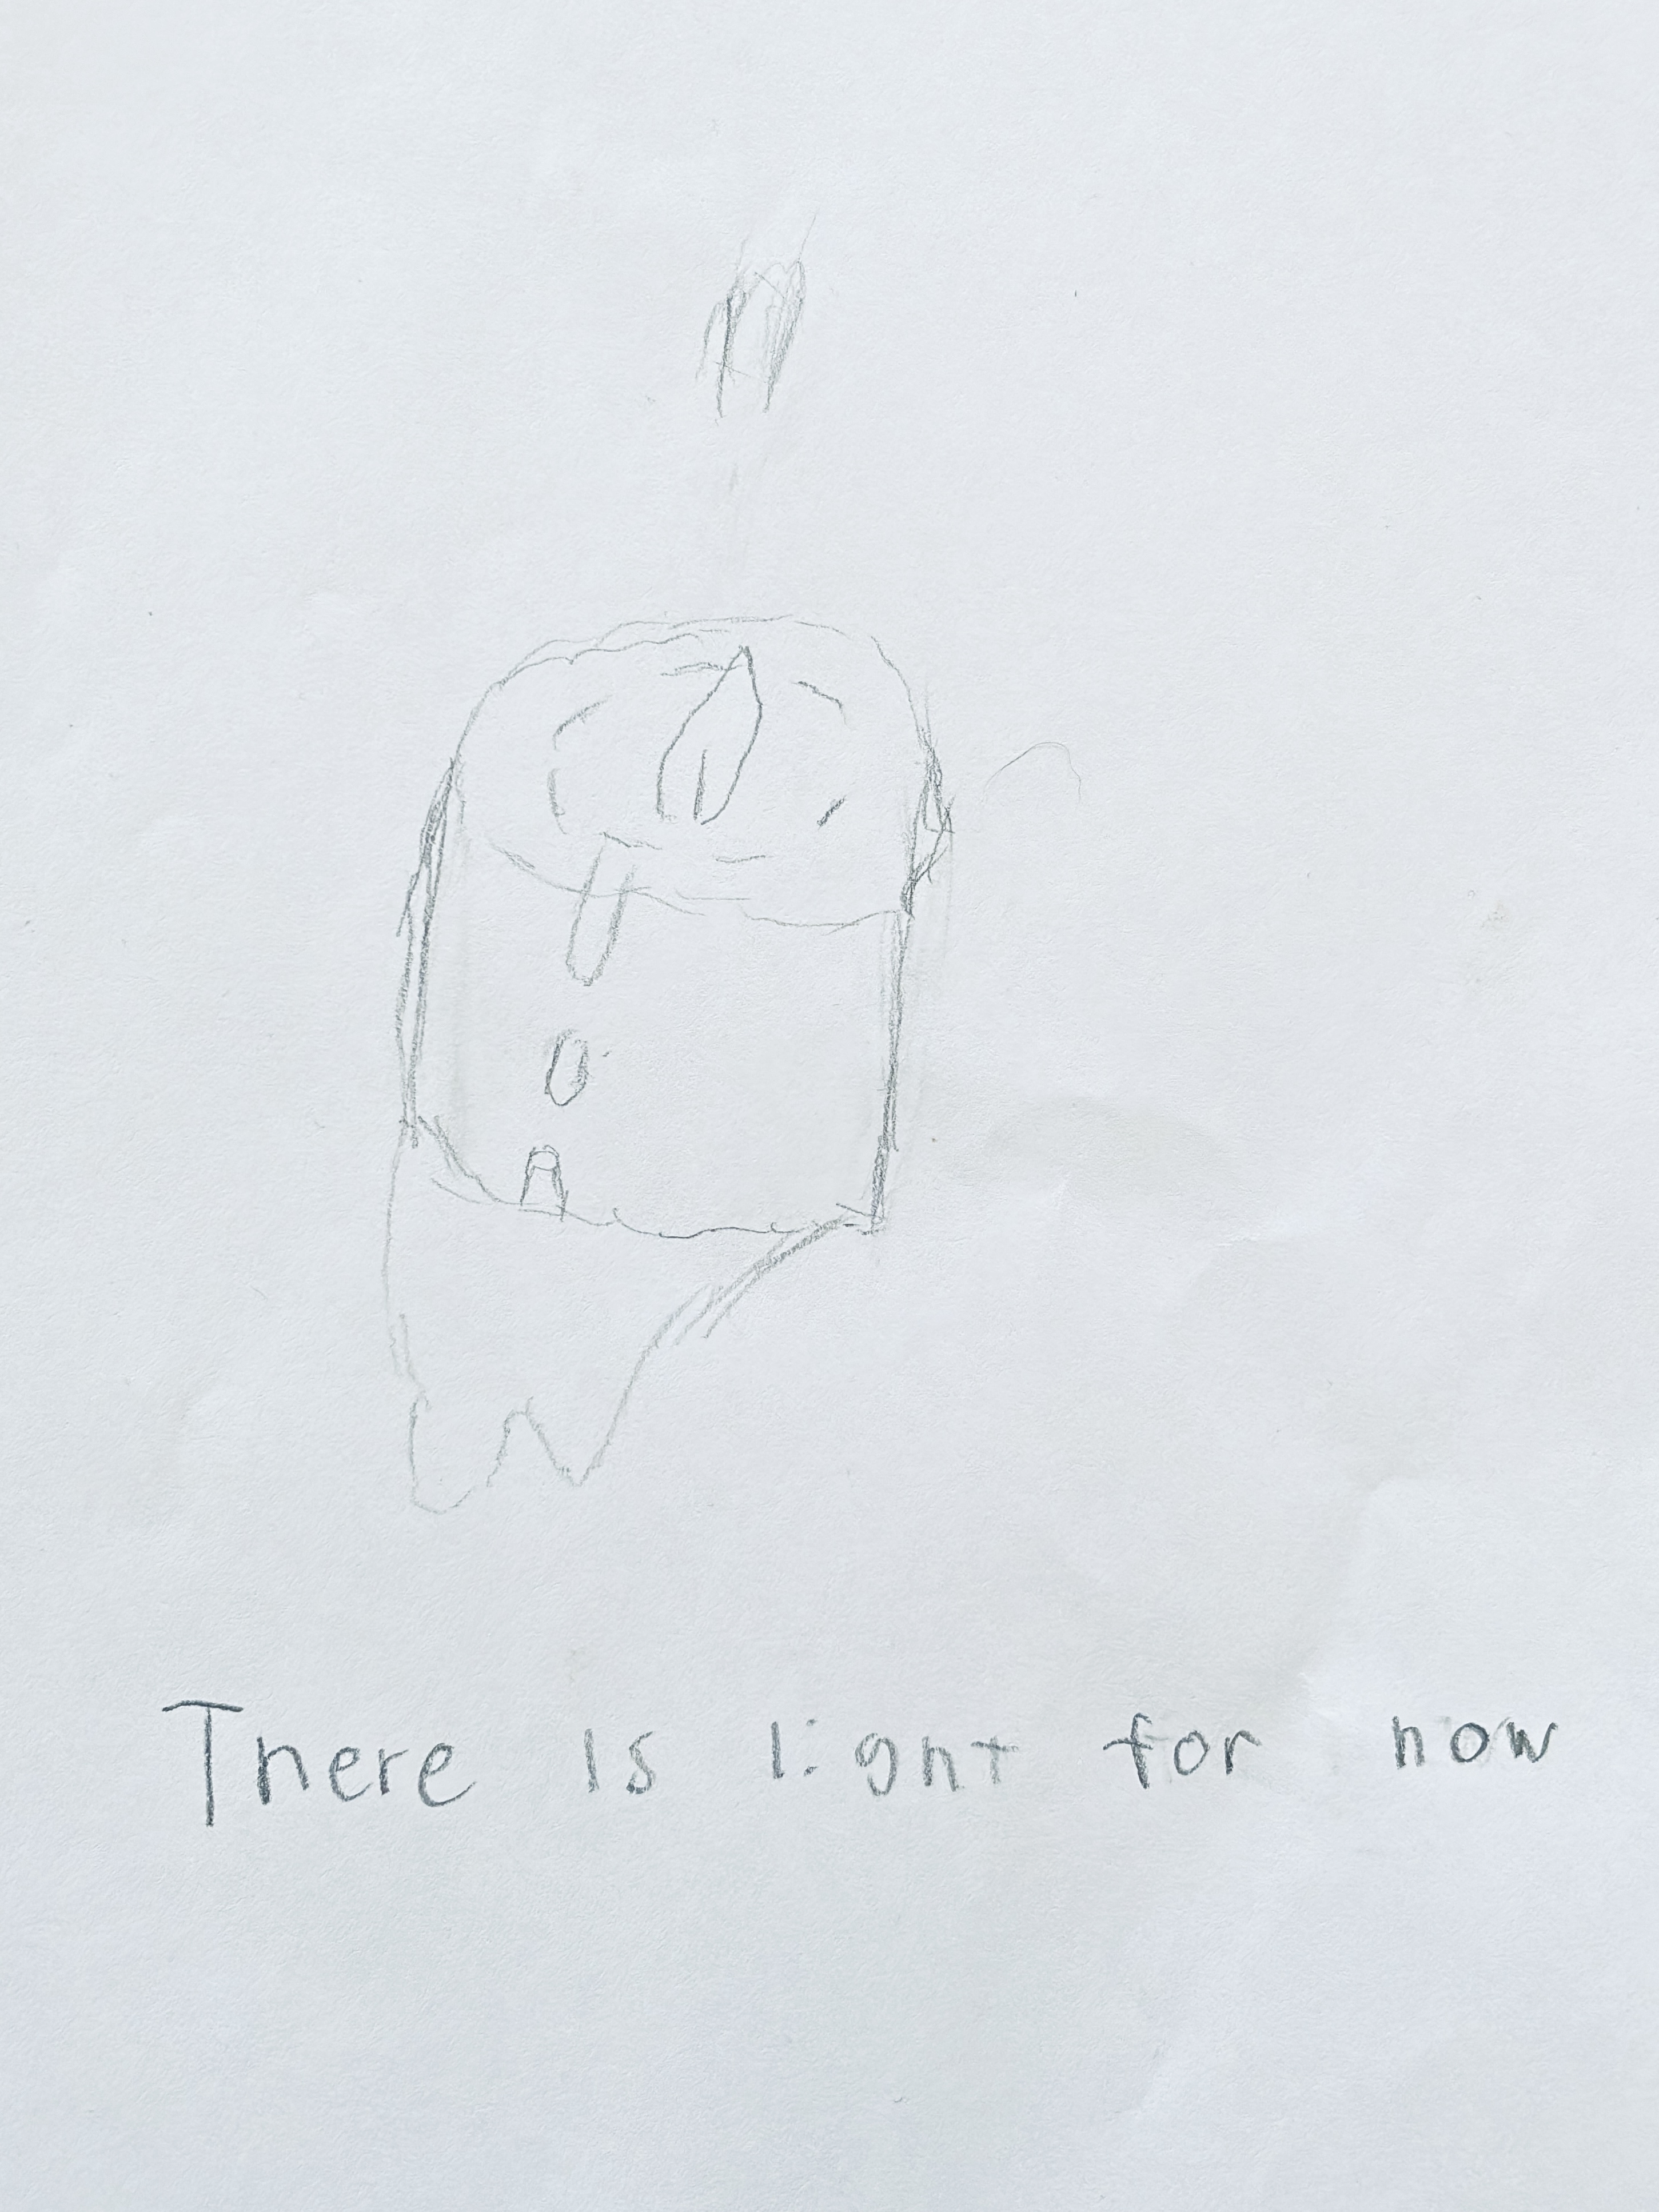 There is light for now